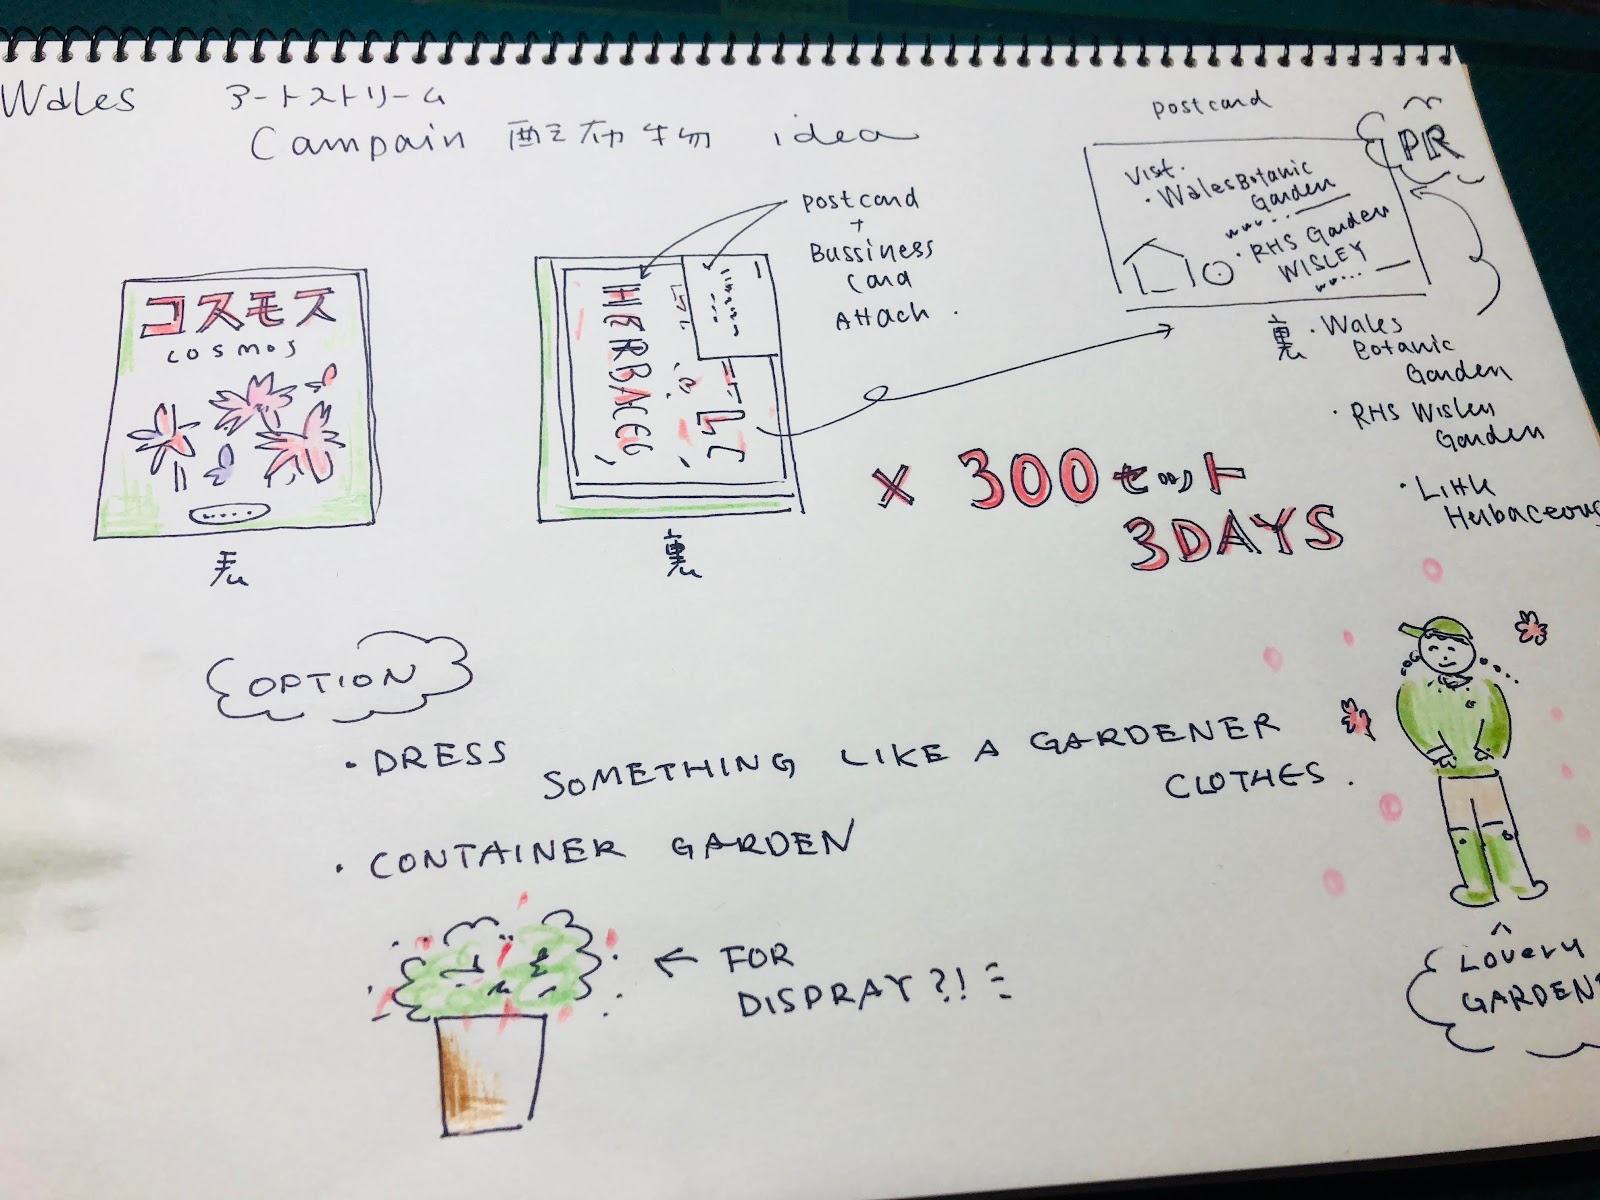 Wales アートストリーム
Campain 配布物 idea
コスモス
cosmos
表
HERBACEO
裏
postcard
+
Bussiness
Card
Attach.
postcard
PR
Visit.
・Wales Botanic
Garden
・RHS Garden
WISLEY
裏
・Wales
Botanic
Garden
・RHS Wisley
Garden
・Little
Herbaceous
× 300セット
3DAYS
OPTION
・DRESS SOMETHING LIKE A GARDENER
CLOTHES.
・CONTAINER GARDEN
← FOR
DISPRAY?!
Lovery
GARDEN